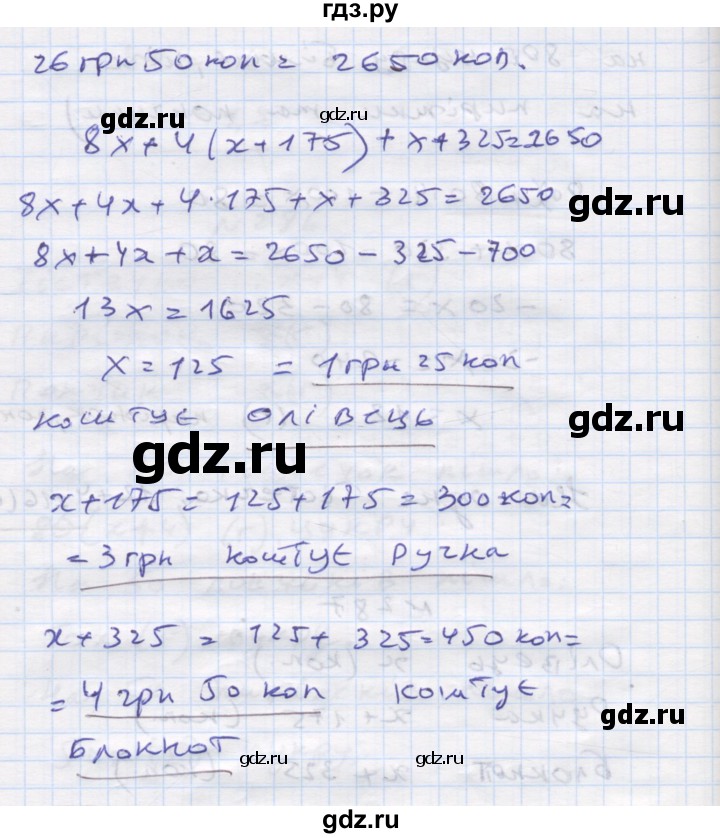 гдз.ру
26 грн 50 коп = 2650 коп.
gdz.ru
8x + 4(x + 175) + x + 325 = 2650
8x + 4x + 4·175 + x + 325 = 2650
gdz.ru
8x + 4x + x = 2650 - 325 - 700
13x = 1625
x = 125 = 1 грн 25 коп
коштує олівець
gdz.ru
gdz.ru
x + 175 = 125 + 175 = 300 коп =
= 3 грн коштує ручка
x + 325 = 125 + 325 = 450 коп =
= 4 грн 50 коп коштує
gdz.ru
блокнот
gdz.ru
gdz.ru
gdz.ru